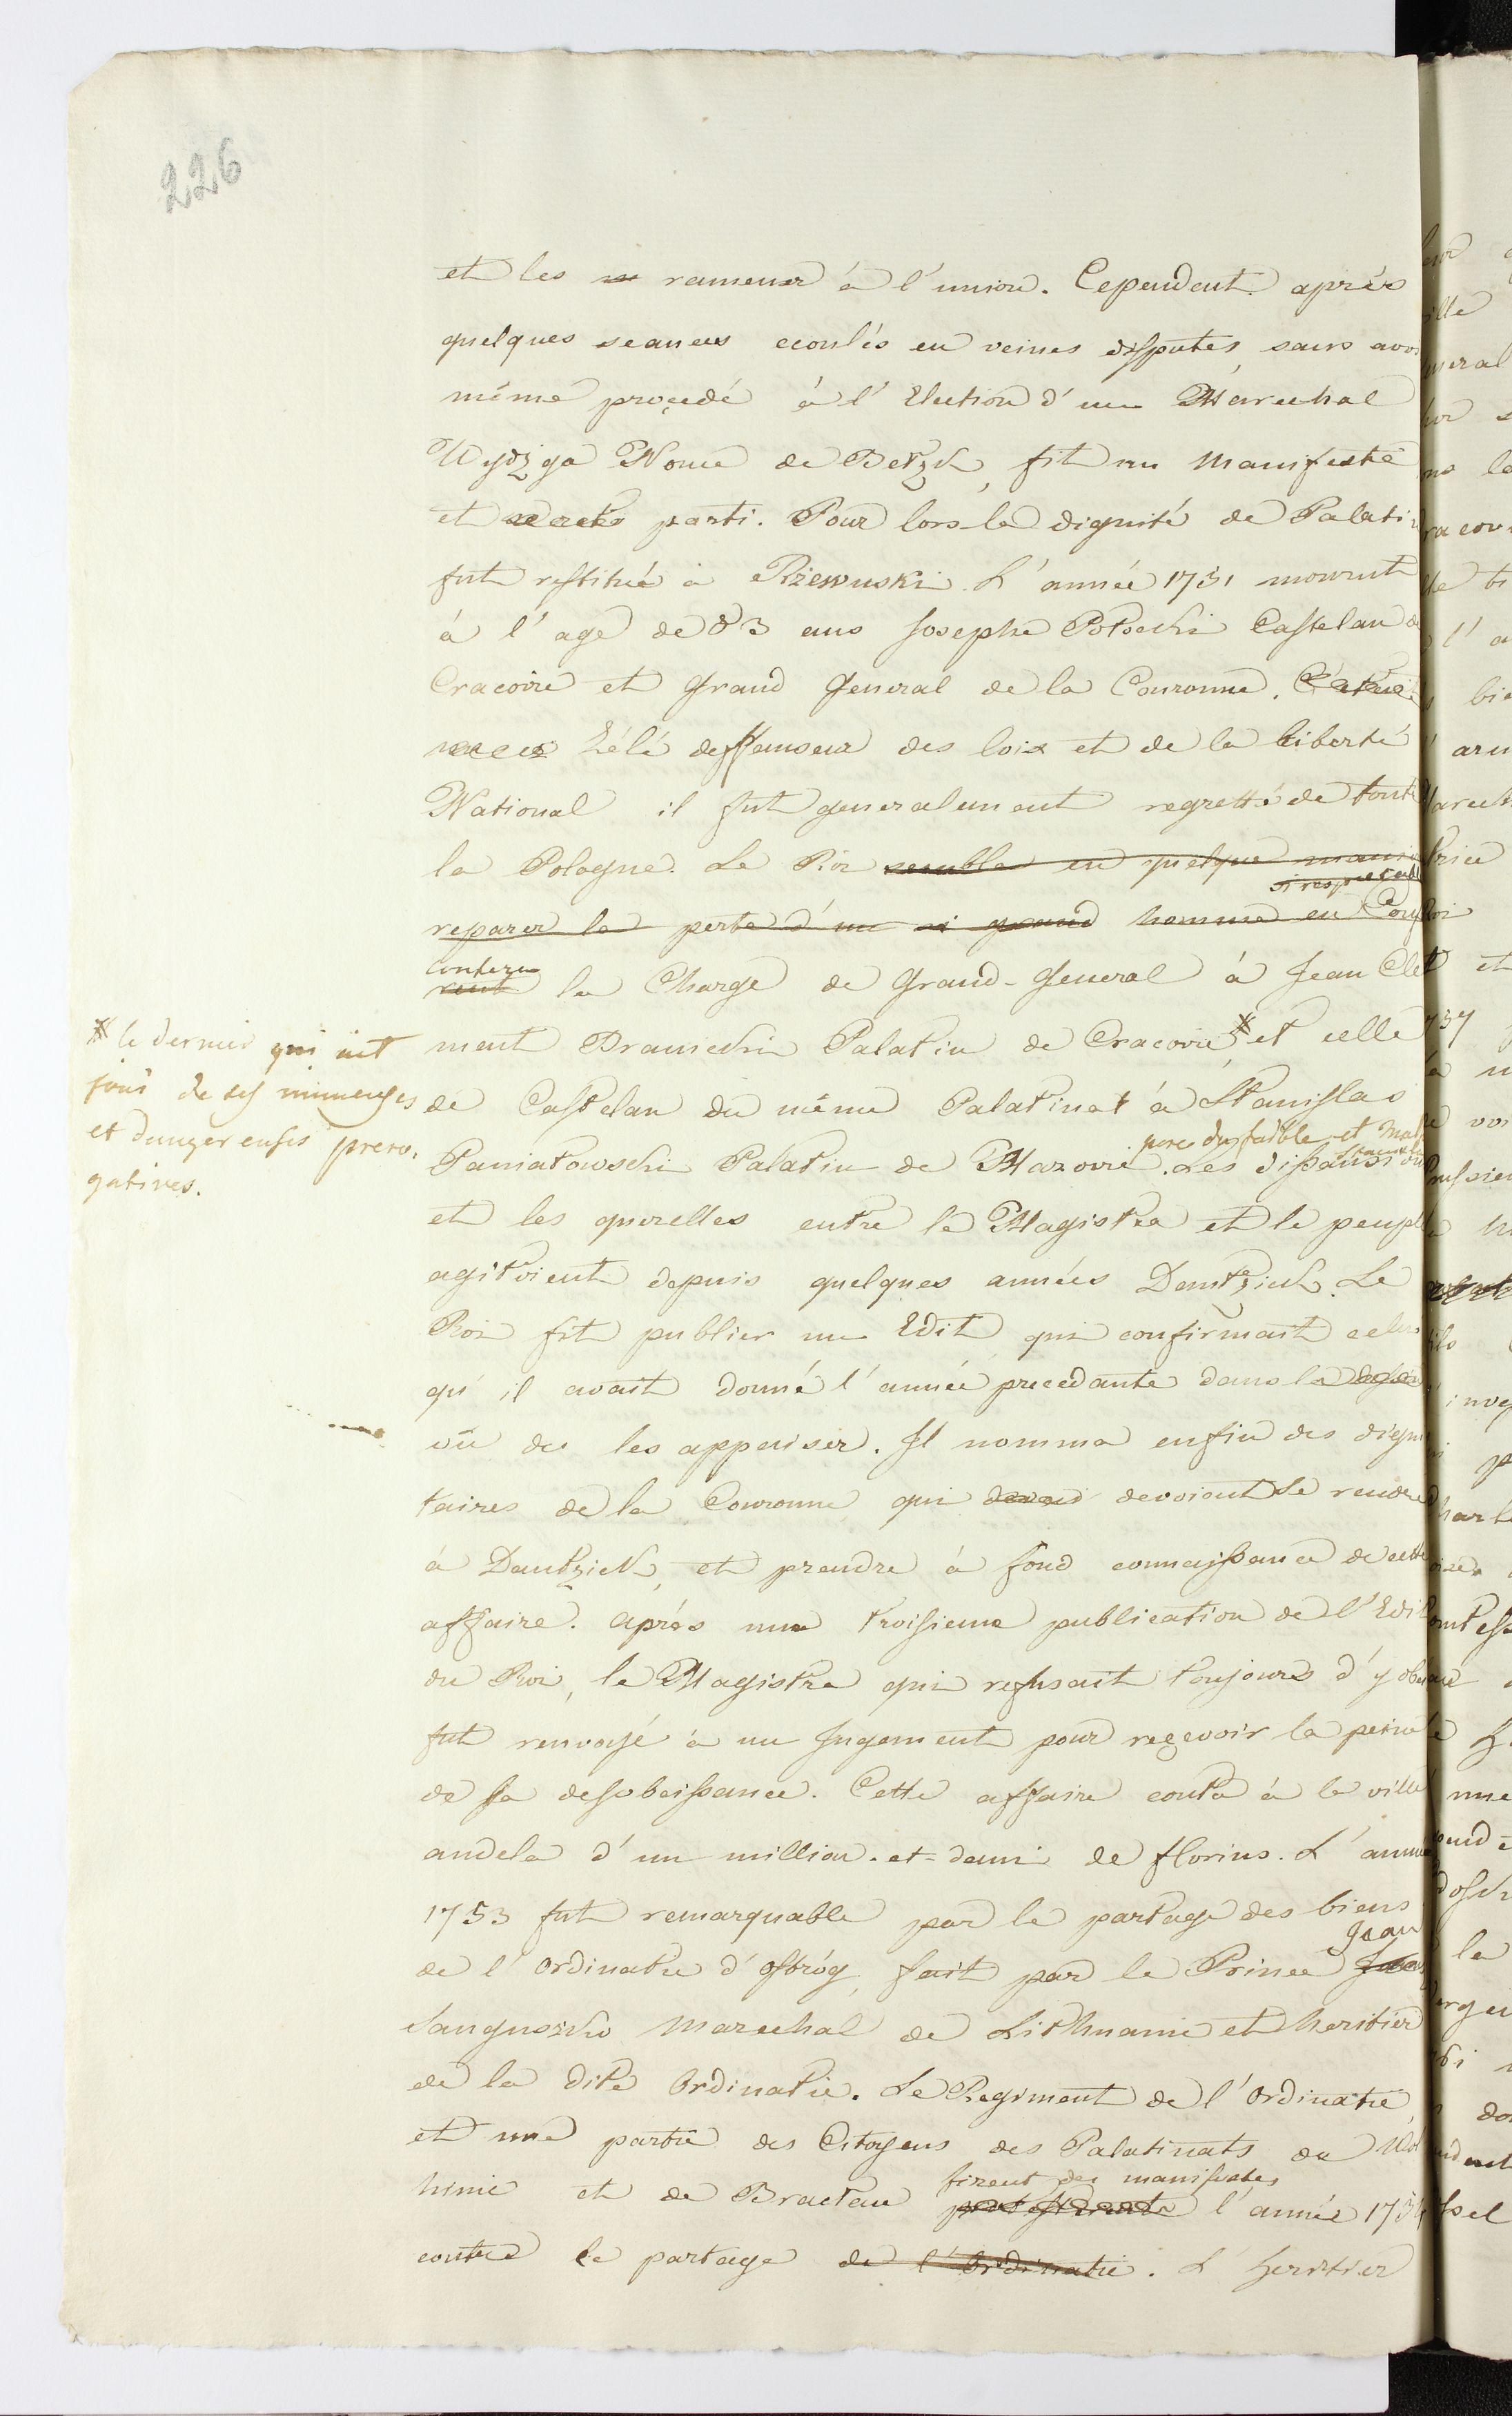 226
et les ramener à l'union. Cependent après
quelques seances ecoulés en veines disputes, sans avoi
même proçedé à l'Election d'un Maréchal
Wydzga Nonce de Betzk, fit un Manifeste
et parti. Pour lors la dignité de Palati
fut restituée à Rżewuski. L'année 1751 mourut
à l'age de 83 ans Josephe Potocki Castelan de
Cracovie et Grand General de la Couronne.
Zélé deffenseur des loix et de la liberté
National il fut generalement regretté de toute
la Pologne. Le Roi sembla en quelque mani
si respectable
reparer la perte d'un si grand homme en
confera
la Charge de Grand-General à Jean Cle
ment Branicki Palatin de Cracovie * et celle
* le dernier qui ait
joui de ses immenses
et dangereuses prero,
gatives.
de Castelan du même Palatinat à Stanislas
pere du faible et mal
Poniatowski Palatin de Mazovie. Les dissansion
et les querelles entre le Magistra et le peupl
agitoient depuis quelques années Dantzick. Le
Roi fit publier un Edit qui confirmait celui
qu'il avait donné l'année precedante dans la
vüe de les appaiser. Il nomma enfin des digni
taires de la Couronne qui devoient se rendre
à Dantzick, et prendre à fond connaissance de cette
affaire. après une troisieme publication de l'Edit
du Roi, le Magistra qui refusait toujours d'y obei
fut renvoyé à un Jugement pour reçevoir la peine
de sa desobeissance. Cette affaire couta à la ville
audela d'un million-et-demi de florins. L'année
1753 fut remarquable par le partage des biens
Jean
de l'Ordinatie d'Ostróg, fait par le Prince
Sanguszko Marechal de Lithuanie et heritier
de la dite Ordinatie. Le Regiment de l'Ordinatie,
et une partie des Citoyens des Palatinats de Wol
hinie et de Braclau l'année 1754
firent des manifestes
contre le partage de l'Ordinatie. L'heritier